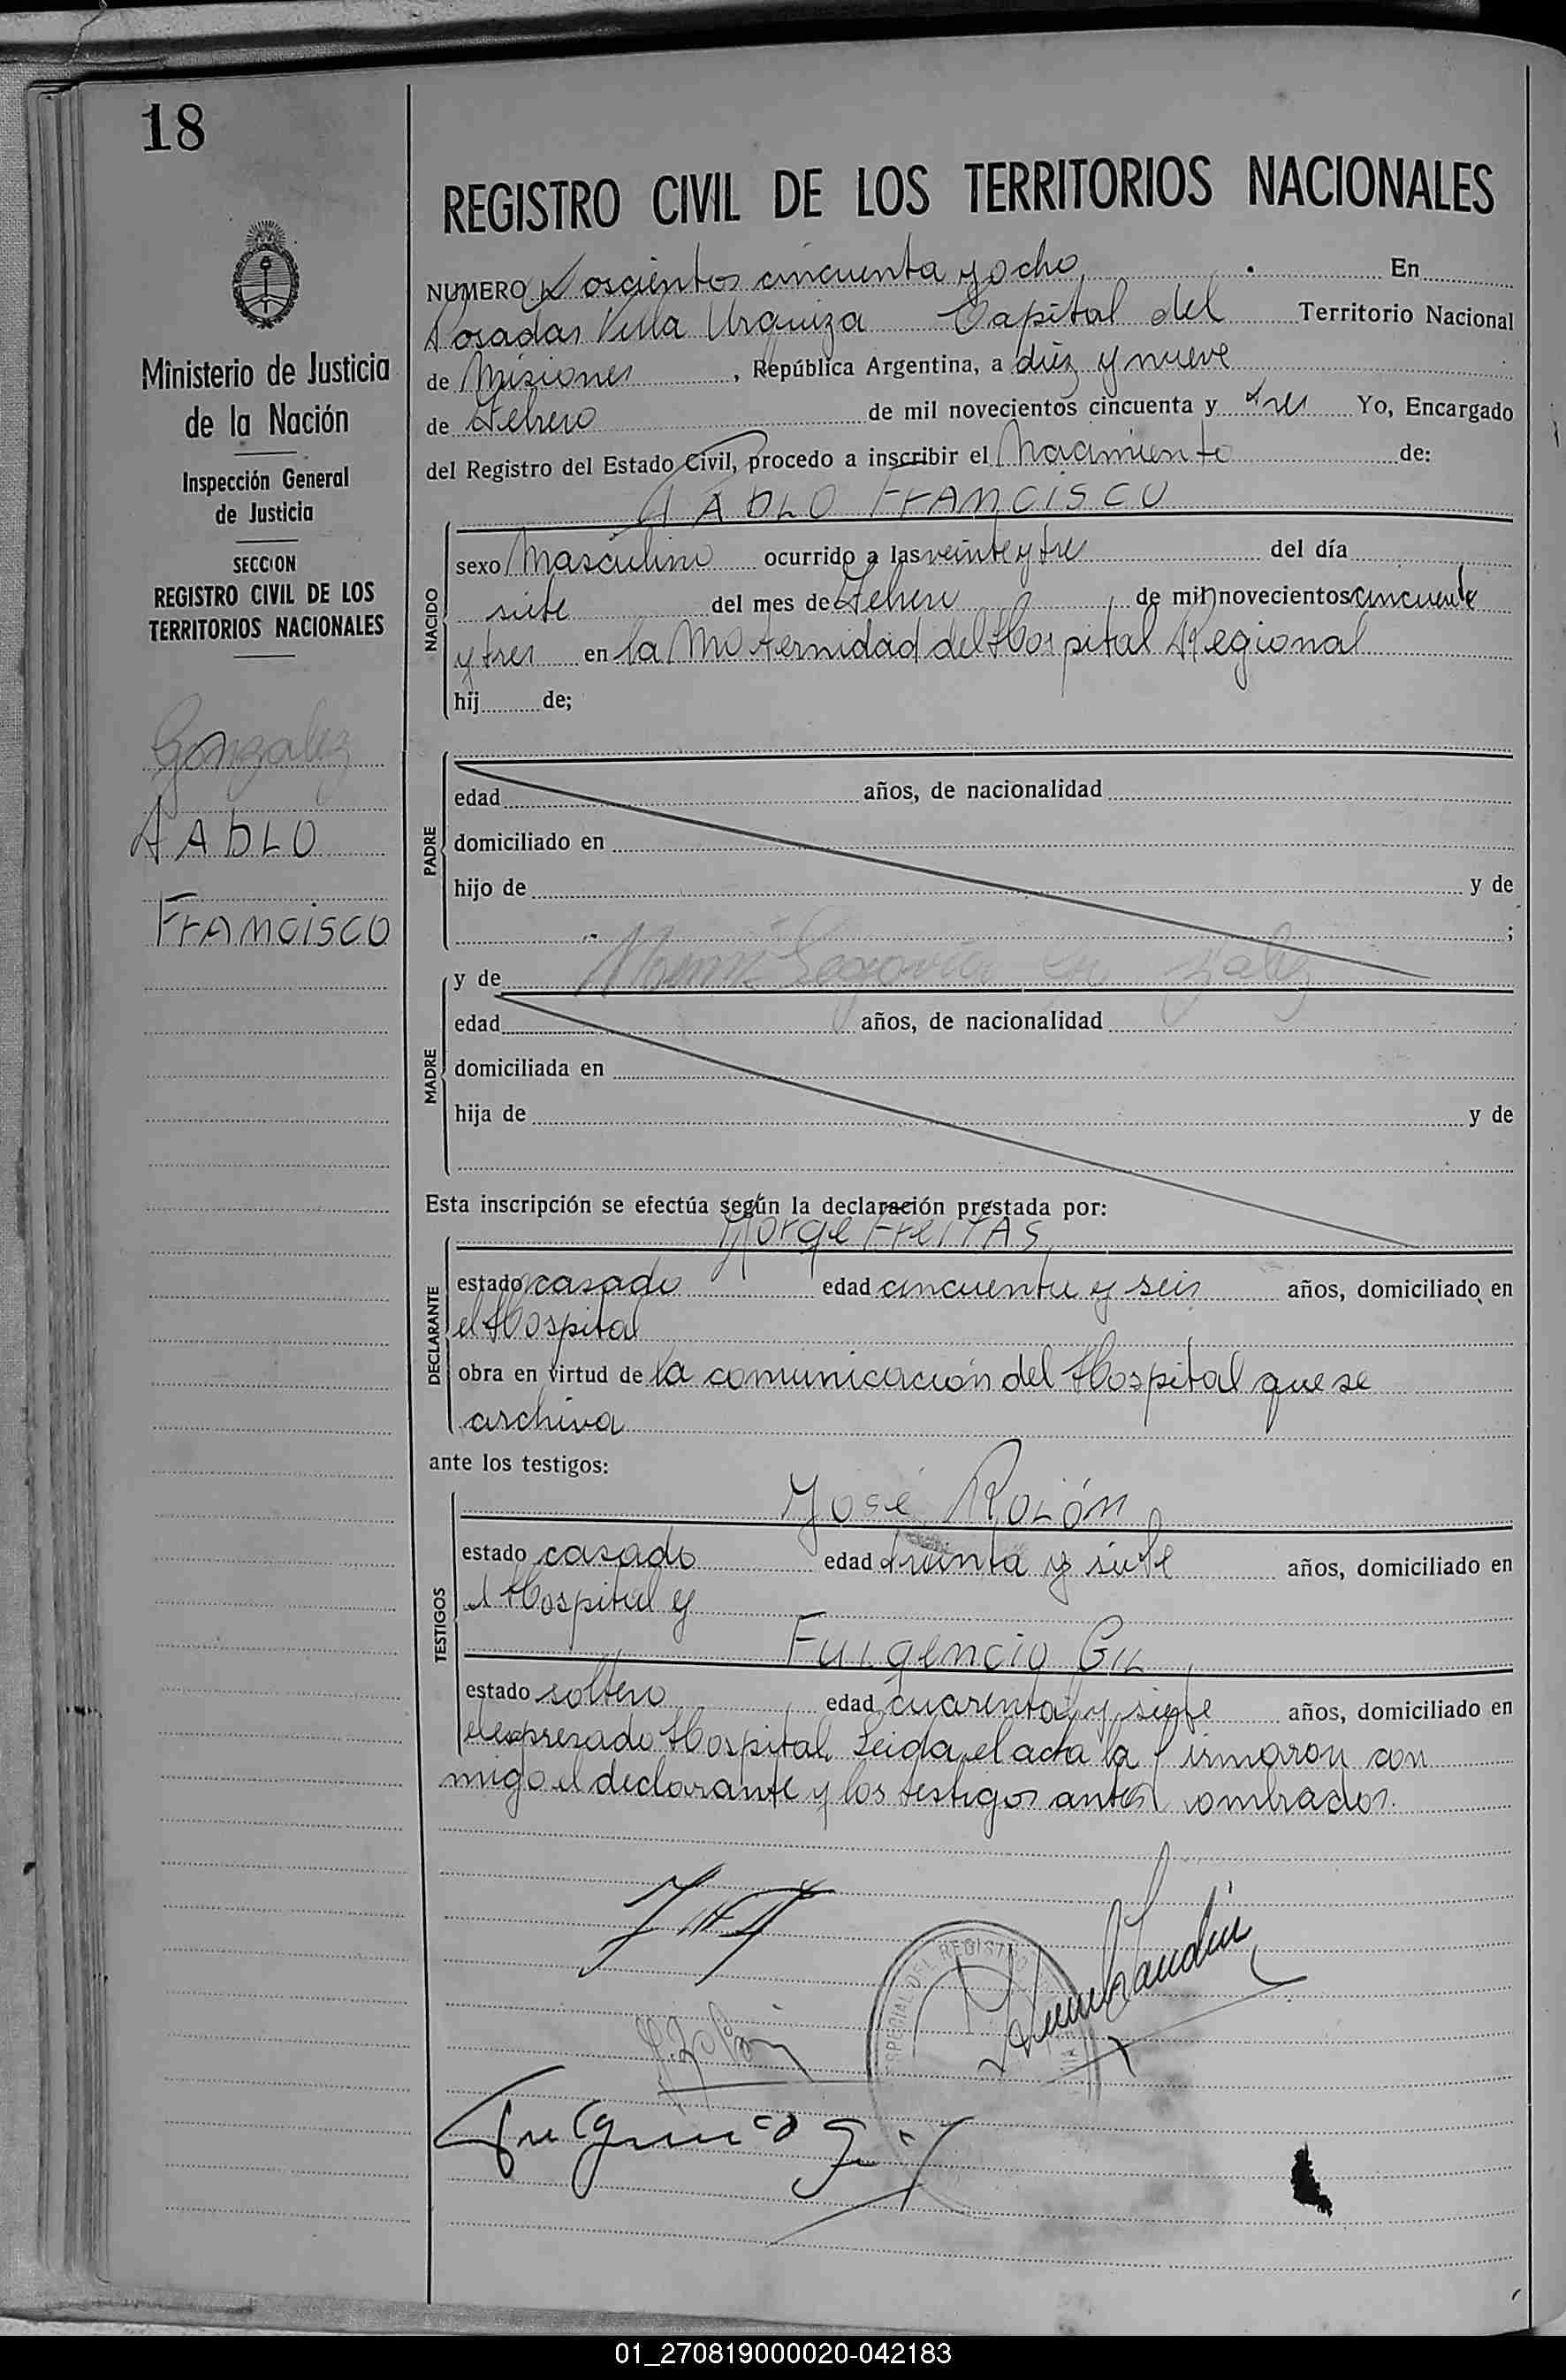 18
Ministerio de Justicia
de la Nación
Inspección General
de Justicia
SECCION
REGISTRO CIVIL DE LOS
TERRITORIOS NACIONALES
Gonzalez
PABLO
FRANCISCO
REGISTRO CIVIL DE LOS TERRITORIOS NACIONALES
NUMERO Doscientos cincuenta y ocho En
Posadas Villa Urquiza Capital del Territorio Nacional
de Misiones, República Argentina, a diez y nueve
de Febrero de mil novecientos cincuenta y tres Yo, Encargado
del Registro del Estado Civil, procedo a inscribir el Nacimiento de:
PABLO FRANCISCO
NACIDO
sexo Masculino ocurrido a las veinte y tres del día
siete del mes de Febrero de mil novecientos cincuenta
y tres en la Maternidad del Hospital Regional
hij de;
PADRE
edad años, de nacionalidad
domiciliado en
hijo de y de
;
MADRE
y de Segovia
edad años, de nacionalidad
domiciliada en
hija de y de
Esta inscripción se efectúa según la declaración prestada por:
Jorge FreITAS
DECLARANTE
estado casado edad cincuenta y seis años, domiciliado en
el Hospital
obra en virtud de la comunicación del Hospital que se
archiva
ante los testigos:
José Rolón
TESTIGOS
estado casado edad treinta y siete años, domiciliado en
el Hospital y
Fulgencio Gil
estado soltero edad cuarenta y siete años, domiciliado en
el expresado Hospital. Leida el acta la firmaron con
migo el declarante y los testigos antes nombrados.
Fulgencio Gil
01_270819000020-042183